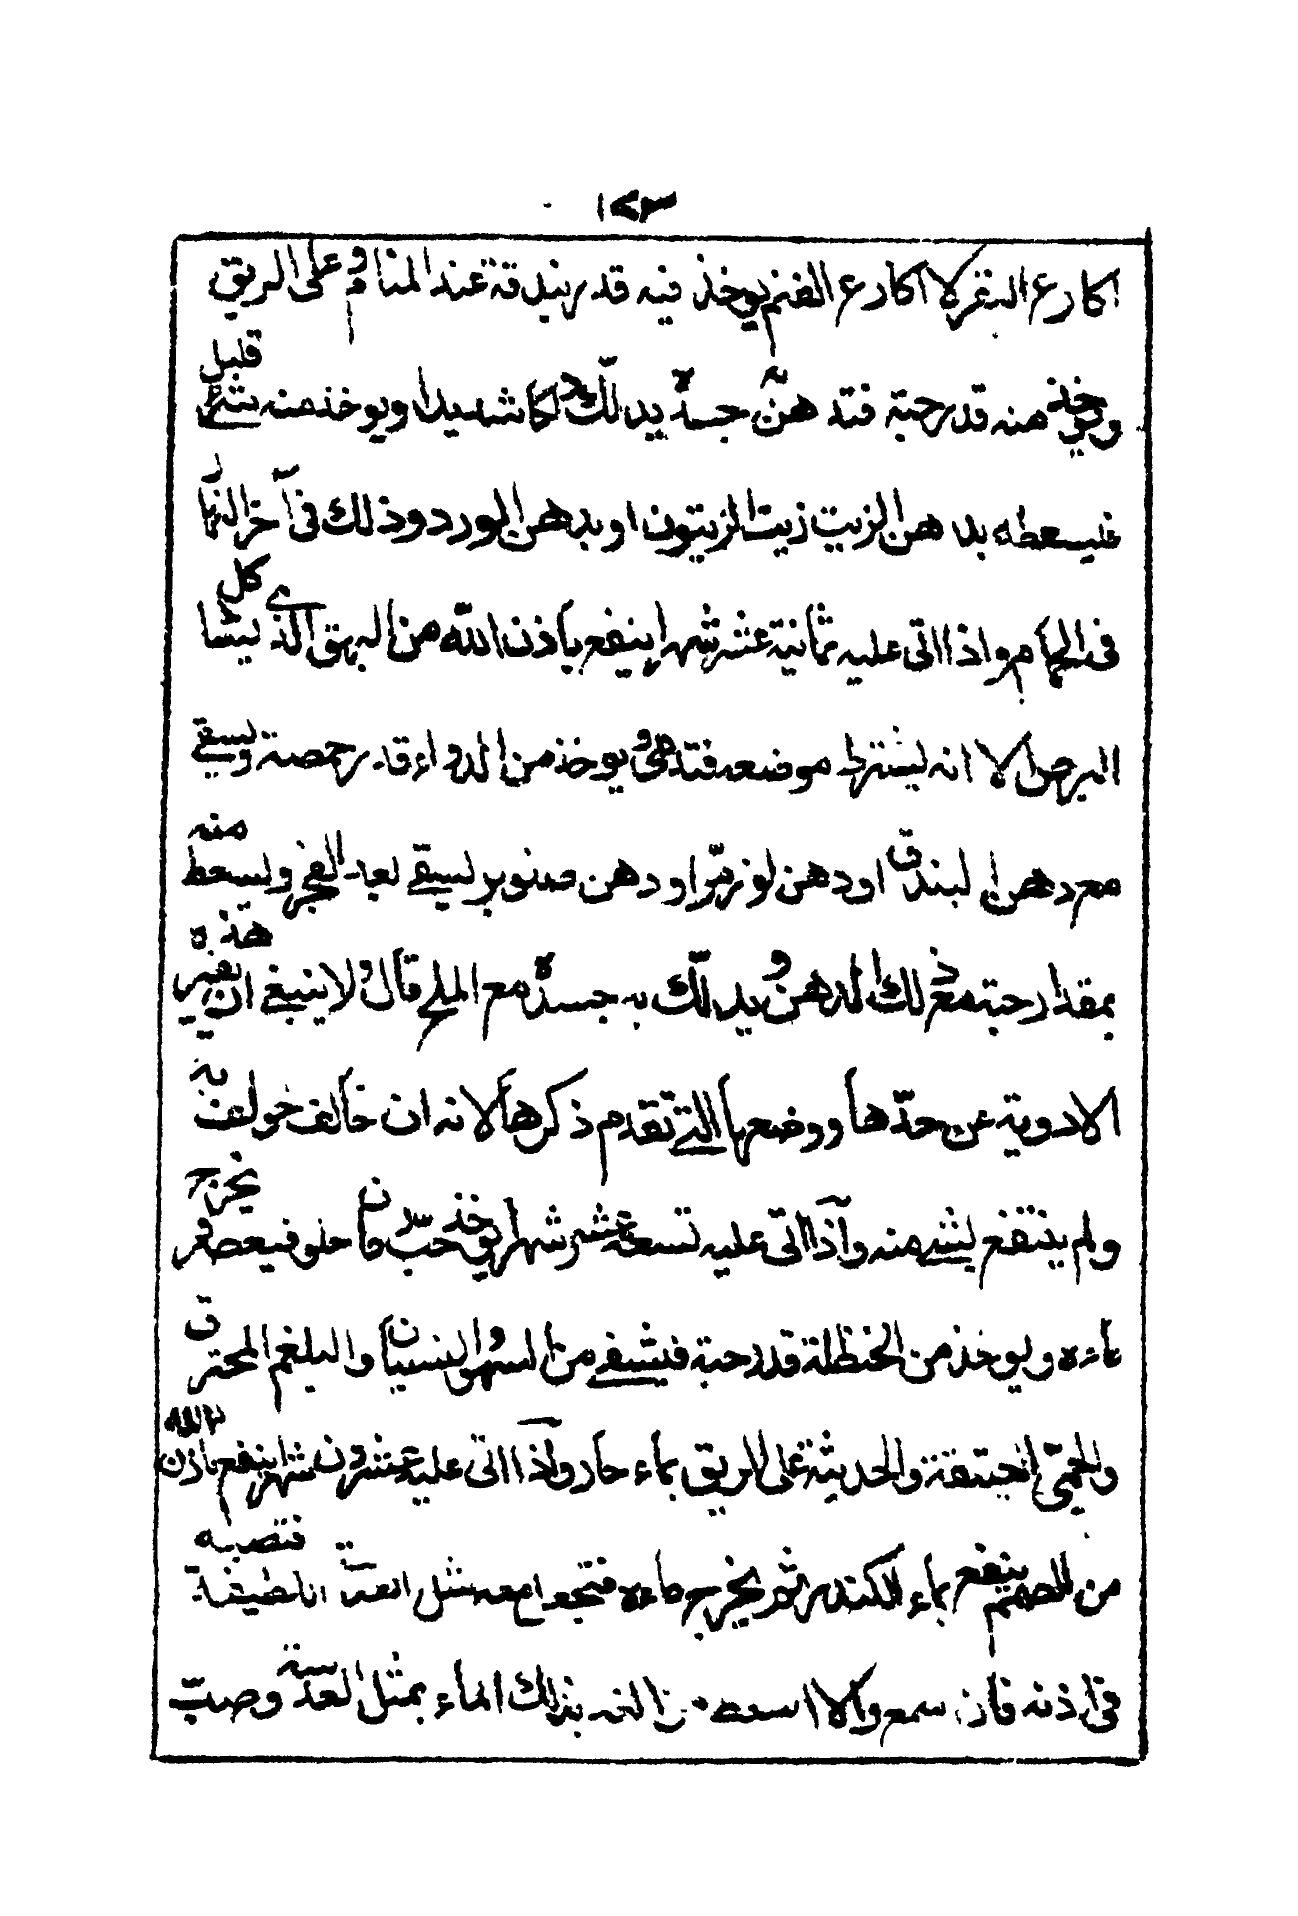 ١٧٣
اكارع البقر لا اكارع الغنم يوخذ فيه قدر بندقة عند المنام وعلى الريق
ويوخذ منه قدر حبة فتدهن به جسده يدلك دلكا شديدا ويوخذ منه شئ قليل
فيسعطه بدهن الزيت زيت الزيتون او بدهن الورد وذلك في آخر النهار
في الحمام واذا اتى عليه ثمانية عشر شهرا ينفع باذن الله من البهق الذي يشاكل
البرص الا انه يشترط موضعه فتدمى ويوخذ من الدواء قدر حمصة ويسقى
مع دهن البندق او دهن لوز مر او دهن صنوبر يسقى بعد الفجر ويسعط منه
بمقدار حبة مع ذلك الدهن ويدلك به جسده مع الملح قال ولا ينبغي ان يغير هذه
الادوية عن حدها ووضعها التي تقدم ذكرها لانه ان خالف خولف به
ولم ينتفع بشئ منه واذا اتى عليه تسعة عشر شهرا يوخذ حب رمان حلو فيعصر ويخرج
ماءه ويوخذ من الحنظلة قدر حبة فيشفي من السهو والنسيان والبلغم المحترق
والحمى العتيقة والحديثة على الريق بماء حار واذا اتى عليه عشرون شهرا ينفع باذن الله
من الصمم ينفع بماء الكندر ثم يخرج ماءه فتجعل معه مثل العدسة اللطيفة فتصبه
في اذنه فان سمع والا اسعط من الغد بذلك الماء بمثل العدسة وصب